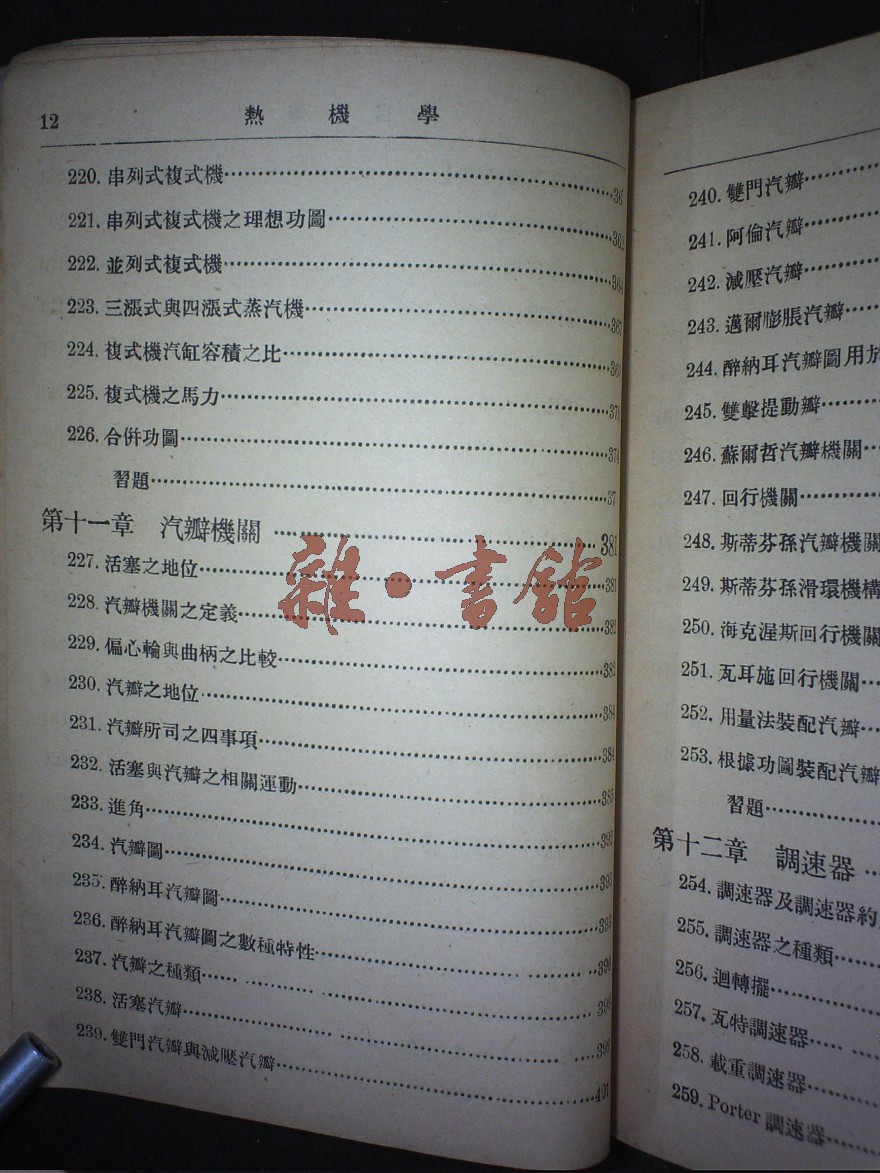 12 熱機學
220. 串列式複式機
221. 串列式複式機之理想功圖
222. 並列式複式機
223. 三漲式與四漲式蒸汽機
224. 複式機汽缸容積之比
225. 複式機之馬力
226. 合併功圖 374
習題
第十一章 汽瓣機關 381
227. 活塞之地位 381
228. 汽瓣機關之定義 382
229. 偏心輪與曲柄之比較
230. 汽瓣之地位 384
231. 汽瓣所司之四事項 384
232. 活塞與汽瓣之相關運動 385
233. 進角
234. 汽瓣圖
235. 醉納耳汽瓣圖
236. 醉納耳汽瓣圖之數種特性 396
237. 汽瓣之種類
238. 活塞汽瓣
239. 雙門汽瓣與減壓汽瓣 401
雜·書館
240. 雙門汽瓣
241. 阿倫汽瓣
242. 減壓汽瓣
243. 邁爾膨脹汽瓣
244. 醉納耳汽瓣圖用於
245. 雙擊提動瓣
246. 蘇爾哲汽瓣機關
247. 回行機關
248. 斯蒂芬孫汽瓣機關
249. 斯蒂芬孫滑環機構
250. 海克渥斯回行機關
251. 瓦耳施回行機關
252. 用量法裝配汽瓣
253. 根據功圖裝配汽瓣
習題
第十二章 調速器
254. 調速器及調速器約
255. 調速器之種類
256. 迴轉擺
257. 瓦特調速器
258. 載重調速器
259. Porter 調速器